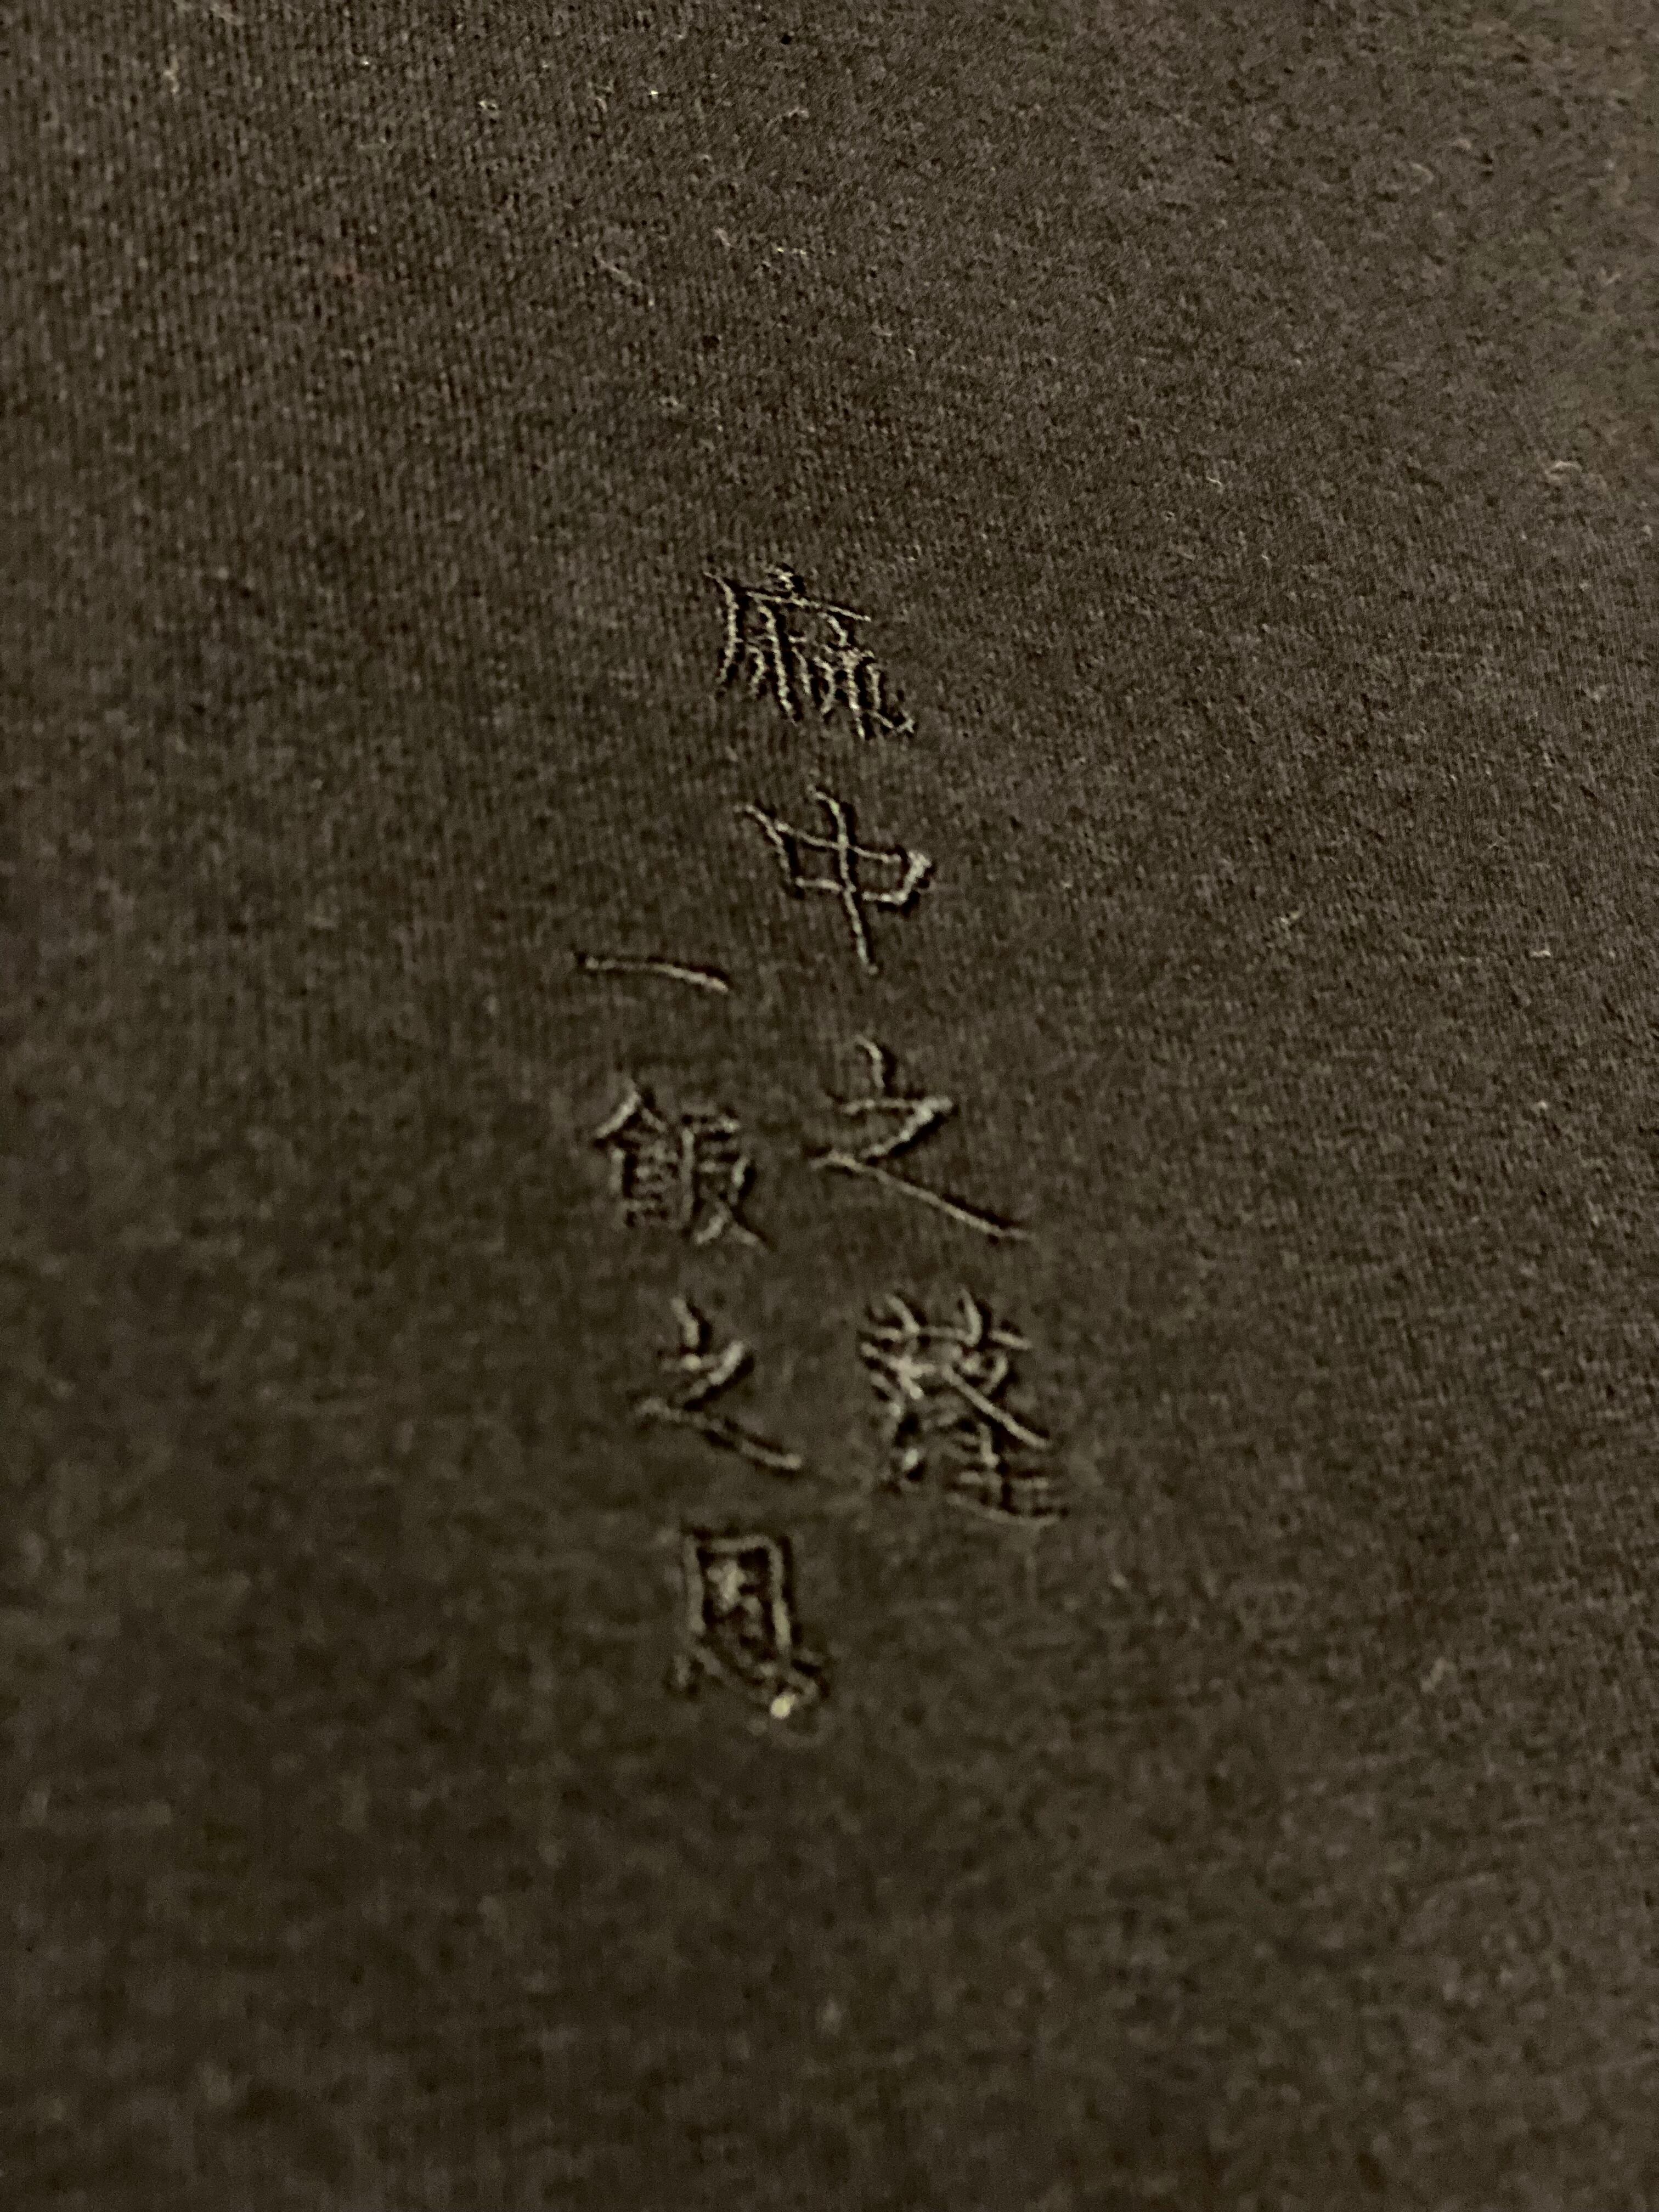 麻中之蓬
一飯之恩